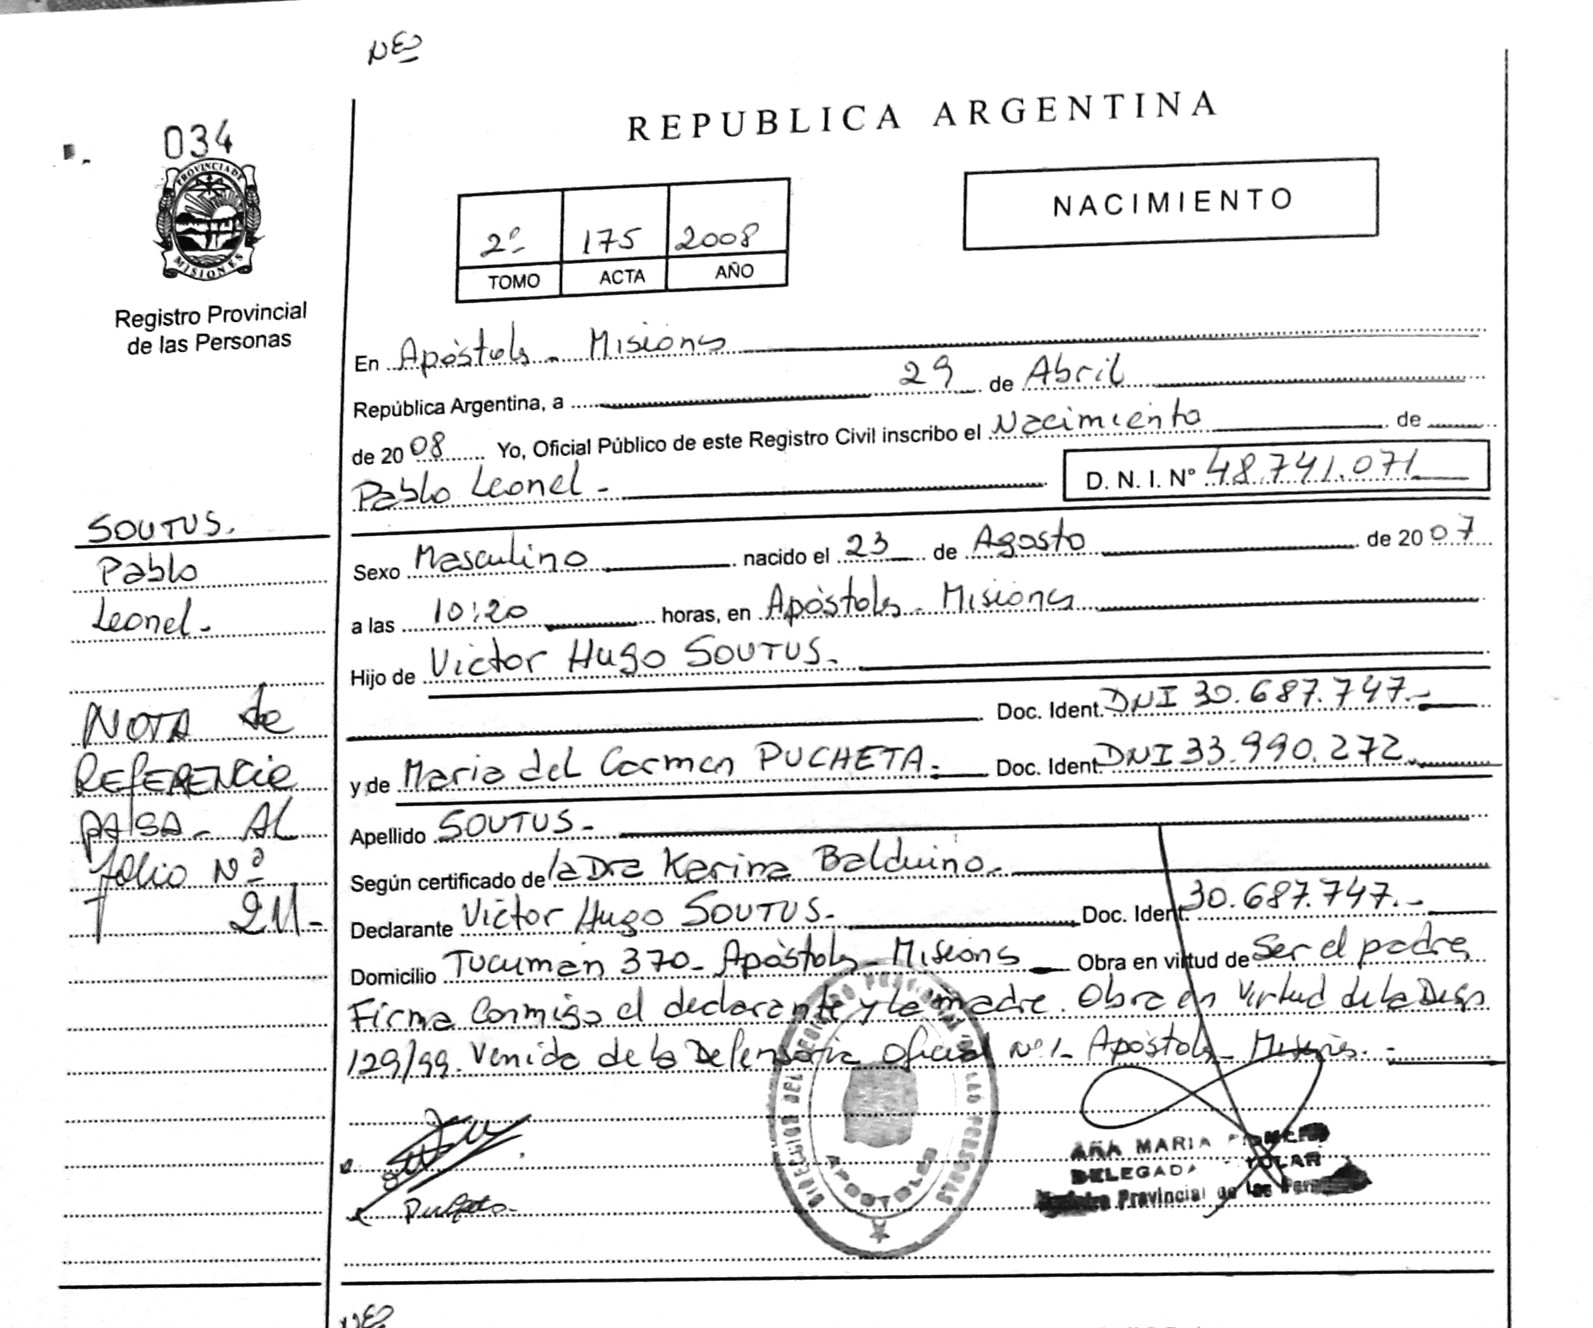 034
PROVINCIA DE
MISIONES
Registro Provincial
de las Personas
REPUBLICA ARGENTINA
2º 175 2008
TOMO ACTA AÑO
NACIMIENTO
En Apóstoles - Misiones
República Argentina, a 29 de Abril
de 2008 Yo, Oficial Público de este Registro Civil inscribo el Nacimiento de
Pablo Leonel - D. N. I. Nº 48.741.071
Sexo Masculino nacido el 23 de Agosto de 2007
a las 10:20 horas, en Apóstoles - Misiones
Hijo de Victor Hugo SOUTUS.
Doc. Ident. DNI 30.687.747.-
y de Maria del Carmen PUCHETA. Doc. Ident. DNI 33.990.272
Apellido SOUTUS -
Según certificado de la Dra Karina Balduino.
Declarante Victor Hugo SOUTUS. Doc. Ident. 30.687.747.-
Domicilio Tucumán 370 - Apóstoles - Misiones Obra en virtud de Ser el padre
Firma Conmigo el declarante y la madre. Obra en Virtud de la Disp.
129/99. Venida de la Defensoria Oficial Nº 1 - Apóstoles - Misiones. -
SOUTUS.
Pablo
Leonel -
NOTA de
REFERENCIA
PASA - AL
folio Nº
211 -
APOSTOLES
ANA MARIA
DELEGADA
Provincial de las